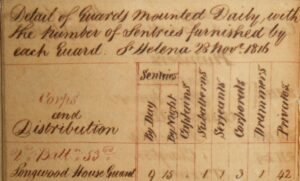 Detail of Guards Mounted Daily, with
the Number of Sentries furnished by
each Guard. St Helena 28 Novr. 1816
Corps
and
Distribution
Sentries
By Day
By Night
Captains
Subalterns
Serjeants
Corporals
Drummers
Privates
2nd Battn. 53rd
Longwood House Guard 9 15 . 1 1 3 1 42